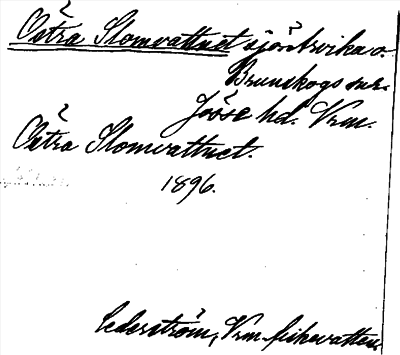 Östra Slomvattnet sjö i Arvika o.
Brunskogs snr.
Jösse hd. Vrm.
Östra Slomvattnet.
1896.
Cederström, Vrm fiskevatten.